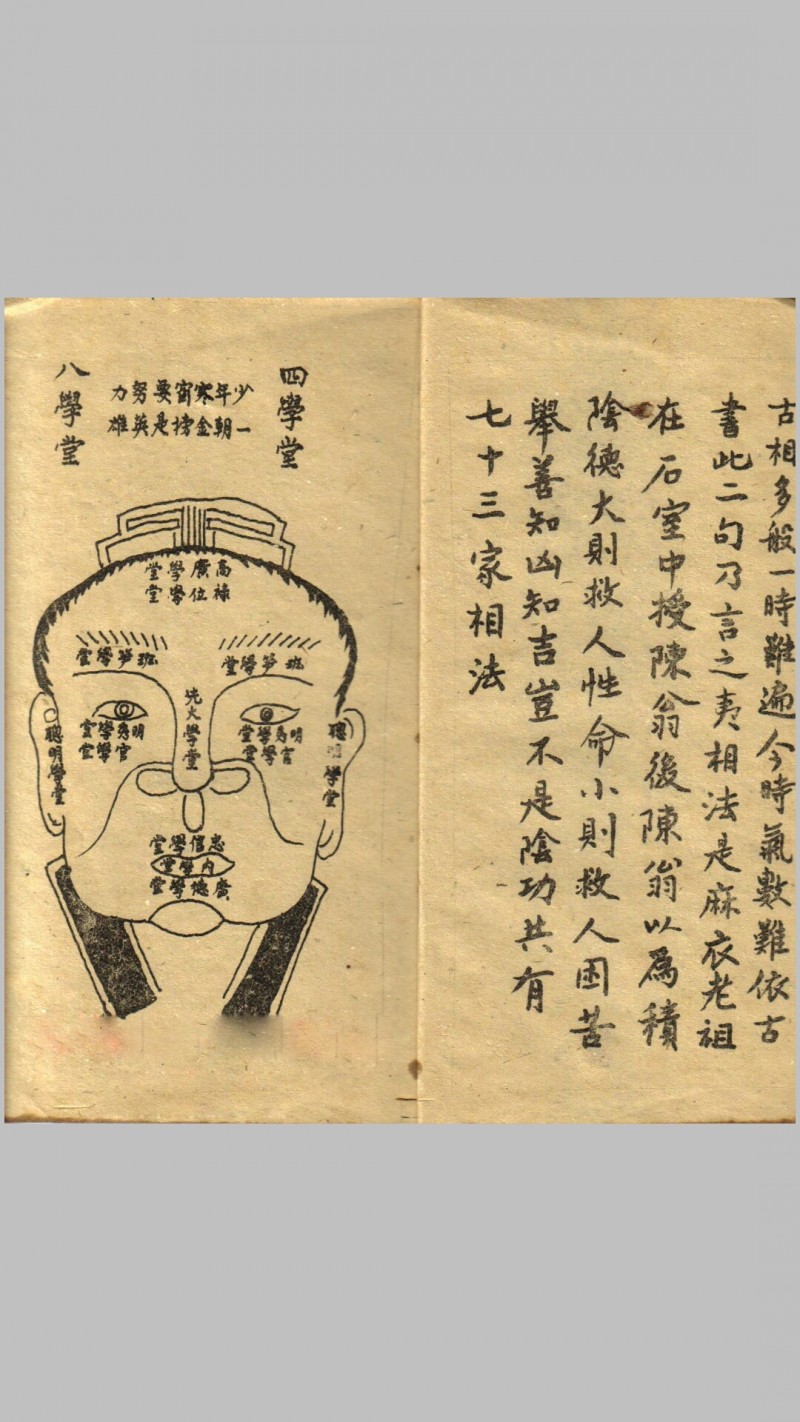 古相多般一時難遍今時氣數難依古
書此二句乃言之夷相法是麻衣老祖
在石室中授陳翁後陳翁以為積
陰德大則救人性命小則救人困苦
舉善知凶知吉豈不是陰功共有
七十三家相法
四學堂
少年寒窗要努力
一朝金榜是英雄
八學堂
高廣學堂
祿位學堂
班笋學堂
班笋學堂
明秀學堂
官學堂
明秀學堂
官學堂
先火學堂
聰明學堂
聰明學堂
忠信學堂
內學堂
廣德學堂